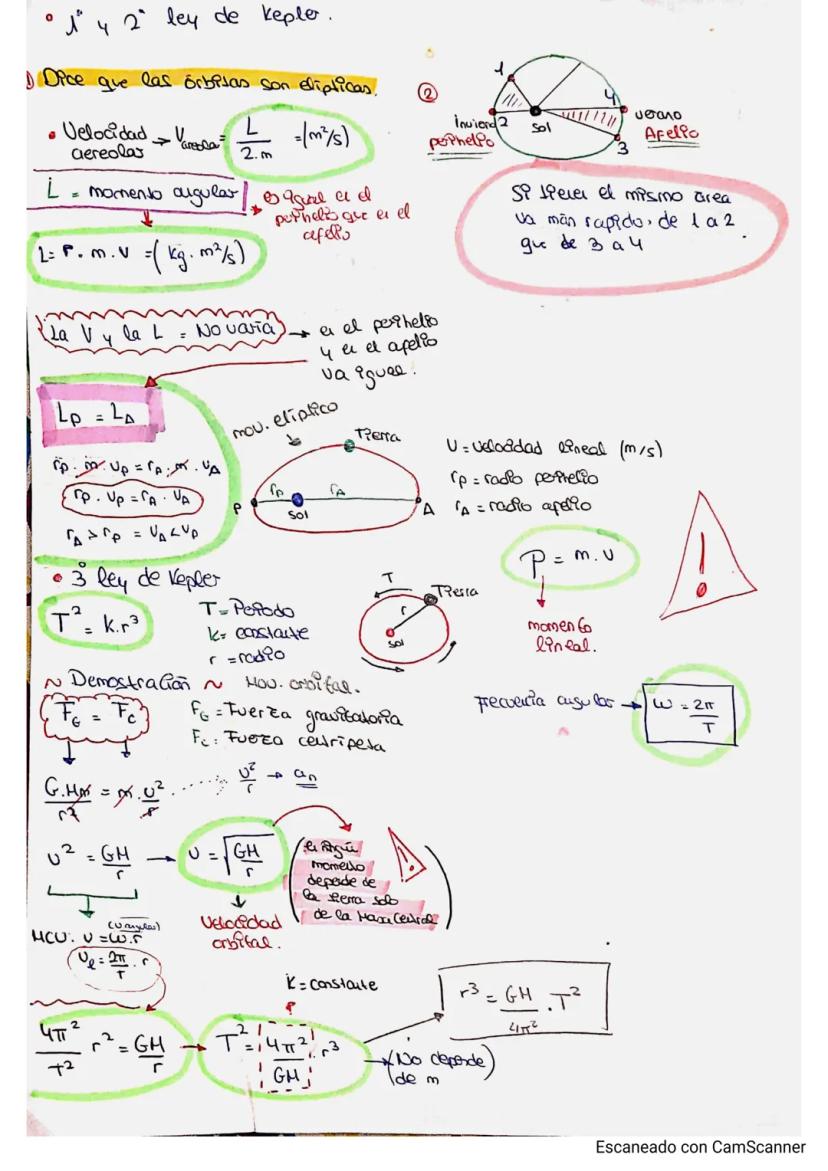 • 1ª y 2ª ley de Kepler.
① Dice que las órbitas son elípticas.
• Velocidad aereolas → Vareolar = L / 2.m = (m²/s)
L = momento angular
es igual en el perihelio que en el afelio
L = r . m . v = ( kg . m²/s )
②
1
4
invierno 2
sol
verano
perihelio
Afelio
3
Si tienen el mismo área
va más rapido, de 1 a 2
que de 3 a 4
La V y la L = No varía → en el perihelio
y en el afelio
va igual.
Lp = LA
rp . m . vp = rA . m . vA
rp . vp = rA . vA
rA > rp = vA < vp
mov. elíptico
Tierra
P
rp
rA
sol
A
v = velocidad lineal (m/s)
rp = radio perihelio
rA = radio afelio
P = m . v
momento
lineal.
!
• 3ª ley de Kepler
T² = k.r³
T = Período
k = constante
r = radio
T
Tierra
r
sol
~ Demostración ~ Mov. orbital.
FG = Fc
FG = Fuerza gravitatoria
Fc : Fuerza centrípeta
Frecuencia angular → ω = 2π / T
G.Mm / r² = m . v² / r ........ v² / r → an
v² = GM / r → v = √GM / r
Velocidad
orbital.
momento
depende de
la tierra solo
de la Masa Central
!
MCU: v = ω.r
(v angular)
vl = 2π / T . r
K = constante
4π² / T² r² = GM / r → T² = 4π² / GM . r³
→ (No depende
de m)
r³ = GM / 4π² . T²
Escaneado con CamScanner